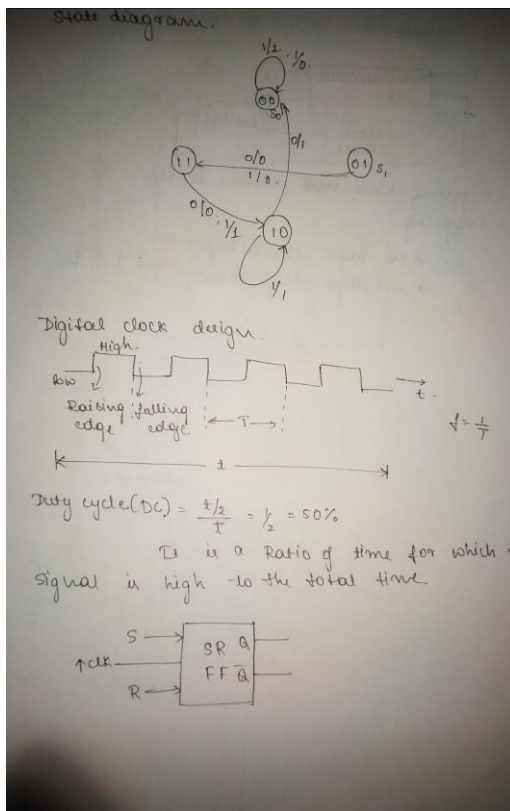 State diagram.
1/1 , 1/0.
00
S0
0/1
11
0/0
1/0.
01 S1
0/0, 1/1
10
1/1
Digital clock design.
High.
low
t.
Raising edge
falling edge
T
f = 1/T
t
Duty cycle (DC) = t/2 / t = 1/2 = 50%
It is a Ratio of time for which
signal is high to the total time
S
SR Q
↑clk
FF Q̅
R